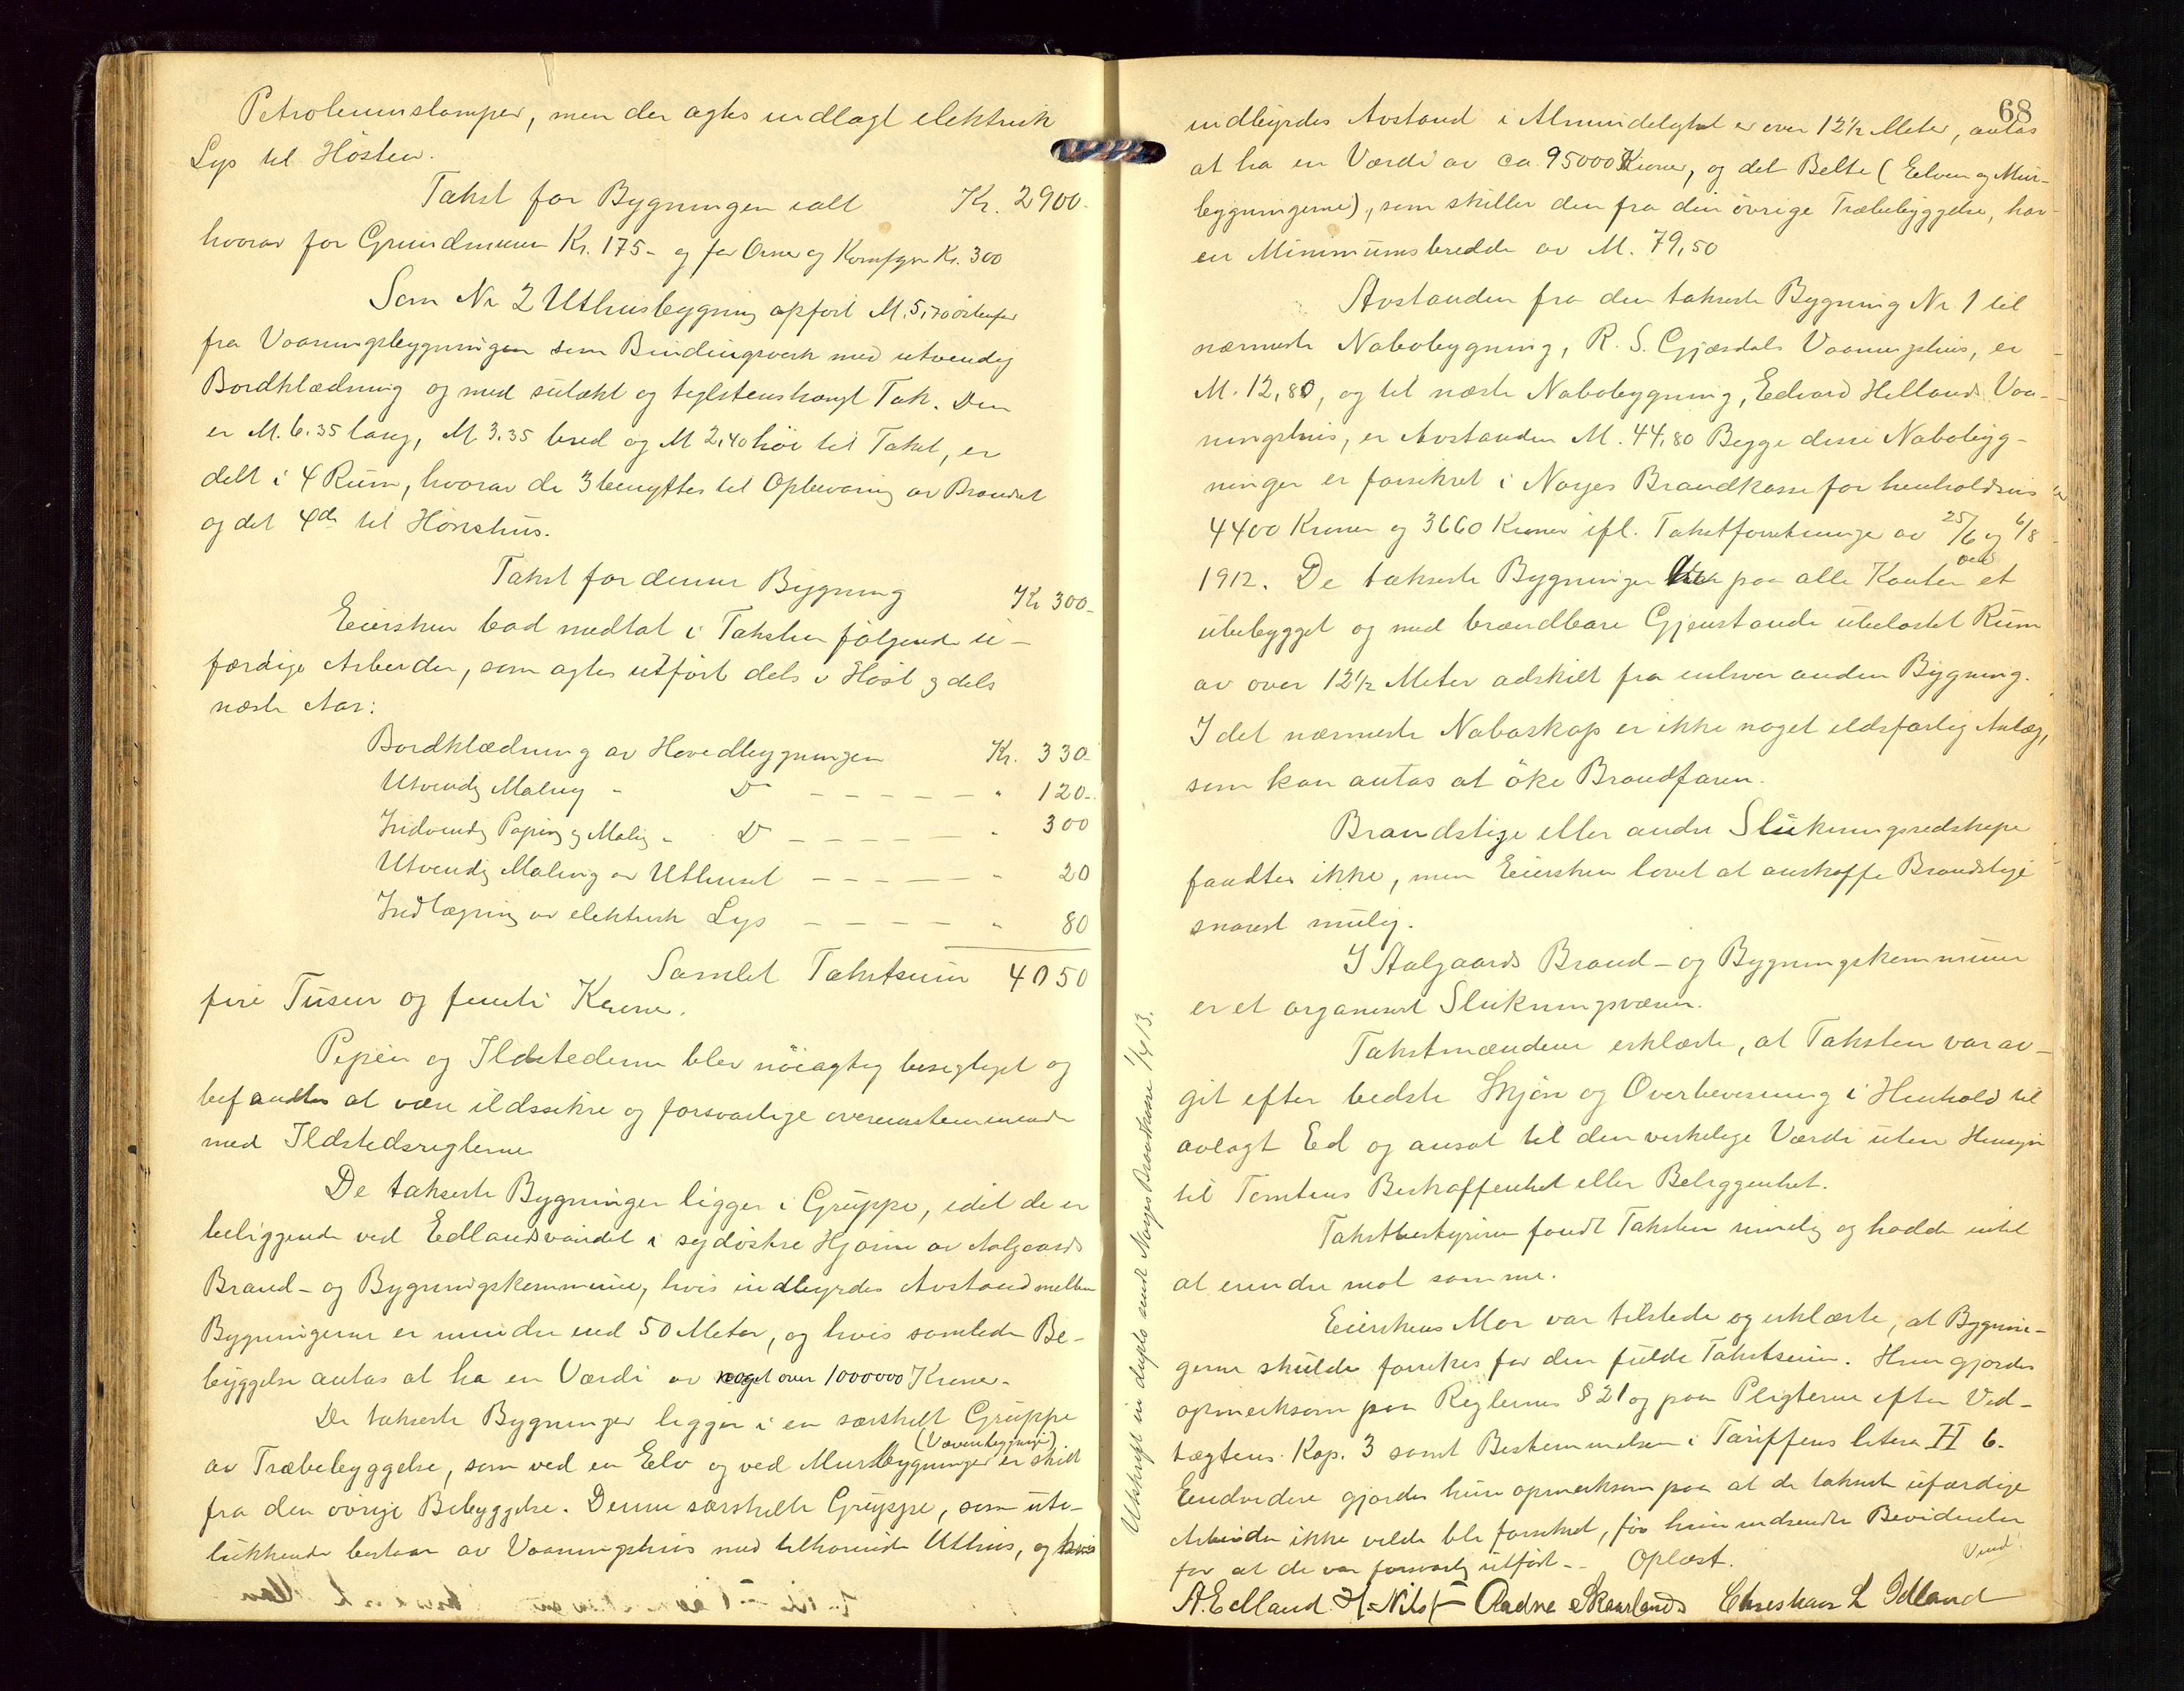 Petroleumslamper, men der agtes indlagt elektrisk
Lys til Høsten.
Takst for Bygningen ialt Kr. 2900.
hvorav for Grundmuren Kr. 175.- og for Ovne og Komfyr Kr. 300
Som Nr 2 Uthusbygning opført M. 5,70 østenfor
fra Vaaningsbygningen som Bindingsverk med utvendig
Bordklædning og med sulækt og teglstenshængt Tak. Den
er M. 6.35 lang, M 3.35 bred og M 2,40 høi til Taket, er
delt i 4 Rum, hvorav de 3 benyttes til Opbevaring av Brændsel
og det 4de til Hønshus.
Takst for denne Bygning Kr 300-
Eiersken bad medtat i Taksten følgende u-
færdige Arbeider, som agtes utført dels i Høst og dels
næste Aar:
Bordklædning av Hovedbygningen Kr. 330-
Utvendig Maling " Do - - - - - " 120.-
Indvendig Papiring og Maling " Do - - - - " 300
Utvendig Maling av Uthuset - - - - " 20
Indlægning av elektrisk Lys - - - - " 80
Samlet Takstsum 4050
fire Tusen og femti Kroner.
Pipen og Ildstederne blev nøiagtig besigtiget og
befandtes at være ildssikre og forsvarlige overensstemmende
med Ildstedsreglerne
De takserte Bygninger ligger i Gruppe, idet de er
beliggende ved Edlandsvandet i sydøstre Hjørne av Aalgaards
Brand- og Bygningskommune, hvis indbyrdes Avstand mellem
Bygningerne er mindre end 50 Meter, og hvis samlede Be-
byggelse antas at ha en Værdi av noget over 1000000 Kroner.
De takserte Bygninger ligger i en særskilt Gruppe
(Væveribygninger)
av Træbebyggelse, som ved en Elv og ved Murbygninger er skilt
fra den øvrige Bebyggelse. Denne særskilte Gruppe, som ute-
lukkende bestaar av Vaaningshus med tilhørende Uthus, og hvis
68
indbyrdes Avstand i Almindelighet er over 12½ Meter, antas
at ha en Værdi av ca 95000 Kroner, og det Belte (Elven og Mur-
bygningerne), som skiller den fra den øvrige Træbebyggelse, har
en Minimumsbredde av M. 79,50
Avstanden fra den takserte Bygning Nr 1 til
nærmeste Nabobygning, R. S. Gjæsdals Vaaningshus, er
M. 12,80, og til næste Nabobygning, Edvard Hellands Vaa-
ningshus, er Avstanden M. 44,80 Begge disse Nabobyg-
ninger er forsikret i Norges Brandkasse for henholdsvis
4400 Kroner og 3660 Kroner ifl. Takstforretninger av 25/6 og 6/8
1912. De takserte Bygninger er paa alle Kanter ved et
ubebygget og med brændbare Gjenstande ubelastet Rum
av over 12½ Meter adskilt fra enhver anden Bygning.
I det nærmeste Naboskap er ikke noget ildsfarlig Anlæg,
som kan antas at øke Brandfaren.
Brandstige eller andre Slukningsredskaper
fandtes ikke, men Eiersken lovet at anskaffe Brandstige
snarest mulig.
I Aalgaards Brand- og Bygningskommune
er et organisert Slukningsvæsen.
Takstmændene erklærte, at Taksten var av-
git efter bedste Skjøn og Overbevisning i Henhold til
avlagt Ed og ansat til den virkelige Værdi uten Hensyn
til Tomtens Beskaffenhet eller Beliggenhet.
Takstbestyreren fandt Taksten rimelig og hadde intet
at erindre mot samme.
Eierskens Mor var tilstede og erklærte, at Bygnin-
gerne skulde forsikres for den fulde Takstsum. Hun gjordes
opmerksom paa Reglernes § 21 og paa Pligterne efter Ved-
tægtens Kap. 3 samt Bestemmelsen i Tariffens litera H 6.
Endvidere gjordes hun opmerksom paa at de takserte ufærdige
Arbeider ikke vilde bli forsikret, før hun indsendte Bevidnelse
for at de var forsvarlig utført.- Oplæst.
Vend!
A. Edland H. Nils Aadne Skaarlands Christian L Idland
Utskrift in duplo sendt Norges Brandkasse 1/4 13.